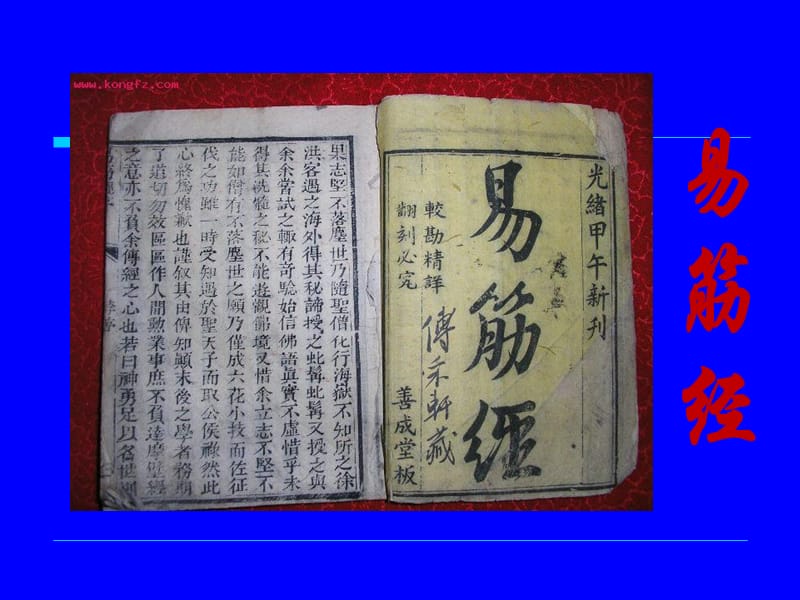 www.kongfz.com
易筋经
光緒甲午新刊
易筋經
較勘精詳
翻刻必究
傅采軒藏
善成堂板
果志堅不落塵世乃隨聖僧化行海嶽不知所之徐
洪客遇之海外得其秘諦授之虬髯虬髯又授之與
余余嘗試之輒有奇驗始信佛語真實不虛惜乎未
得其洗髓之秘不能遊觀佛境又惜余立志不堅不
能如僧有不落塵世之願乃僅成六花小技而佐征
伐之功雖一時受知遇於聖天子而取公侯祿然此
心終為愧歉也謹叙其由俾知顛末後之學者務期
了道切勿效區區作人間勲業事庶不負達摩
之意亦不負余傳經之心也若曰神勇足以名世則